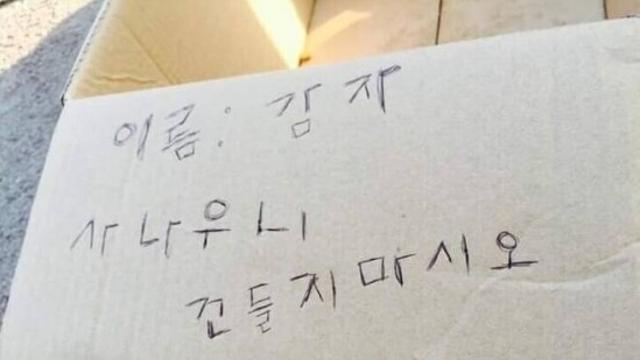 이름: 감자
사나우니
건들지마시오